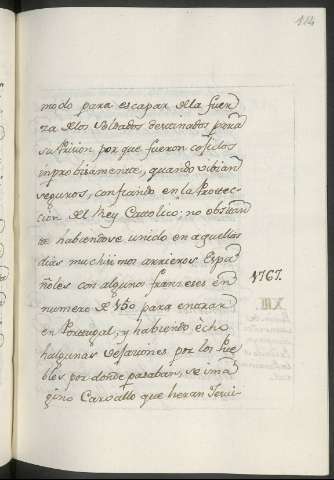 114
modo para escapar de la fuer
za de los Soldados destinados para
su Prision, por que fueron cojidos
improbisamente, quando vibian
seguros, confiando en la Protec-
cion del Rey Cattolico; no obstan
te habiendose unido en aquellos
dias muchisimos arrieros Espa
ñoles con algunos franzeses en
numero de 150 para entrar
en Portugal, y habiendo echo
halgunas desazones por los Pue
blos por donde pasaban, se ima
gino Carvallo que heran Jesui-
1767.
XIII